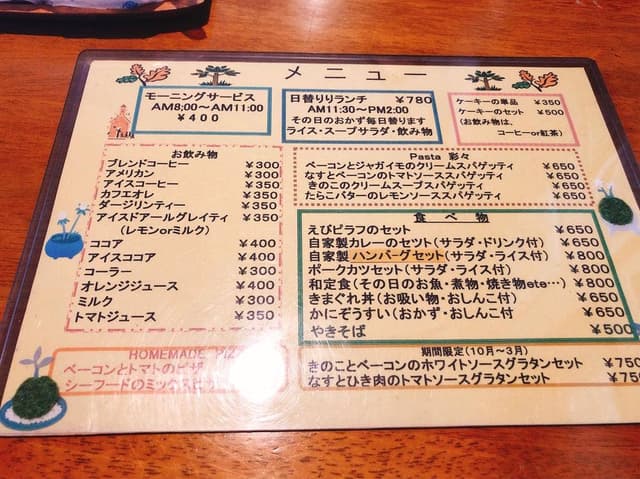 メニュー
モーニングサービス
AM8:00～AM11:00
￥400
日替りりランチ ￥780
AM11:30～PM2:00
その日のおかず毎日替ります
ライス・スープサラダ・飲み物
ケーキーの単品 ￥350
ケーキーのセット ￥500
(お飲み物は、
コーヒーor紅茶)
お飲み物
ブレンドコーヒー ￥300
アメリカン ￥300
アイスコーヒー ￥350
カフエオレ ￥350
ダージリンティー ￥350
アイスドアールグレイティ ￥350
(レモンorミルク)
ココア ￥400
アイスココア ￥400
コーラー ￥300
オレンジジュース ￥400
ミルク ￥300
トマトジュース ￥350
Pasta 彩々
ベーコンとジャガイモのクリームスパゲッティ ￥650
なすとベーコンのトマトソーススパゲッティ ￥650
きのこのクリームスープスパゲッティ ￥650
たらこバターのレモンソーススパゲッティ ￥650
食べ物
えびピラフのセット ￥650
自家製カレーのセツト(サラダ・ドリンク付) ￥650
自家製ハンバーグセット(サラダ・ライス付) ￥800
ポークカツセット(サラダ・ライス付) ￥800
和定食(その日のお魚・煮物・焼き物ete…) ￥800
きまぐれ丼(お吸い物・おしんこ付) ￥650
かにぞうすい(おかず・おしんこ付 ￥650
やきそば ￥500
HOMEMADE
ベーコンとトマトのピザ
シーフードのミックス
期間限定(10月～3月)
きのことベーコンのホワイトソースグラタンセット ￥750
なすとひき肉のトマトソースグラタンセット ￥750